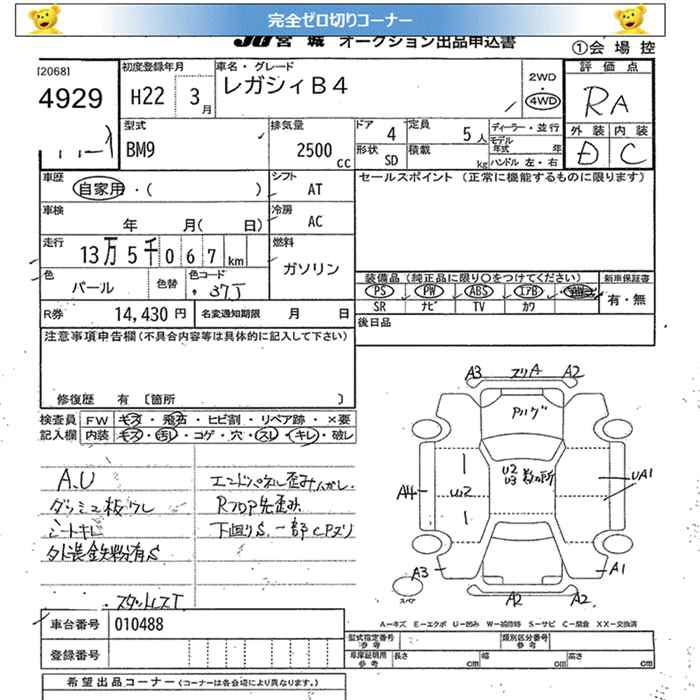 完全ゼロ切りコーナー
JU 宮城 オークション出品申込書
①会場控
[2068]
4929
初度登録年月
H22 3月
車名・グレード
レガシィB4
2WD
・
4WD
評価点
RA
外装 内装
D C
型式
BM9
排気量
2500 cc
ドア 4
定員 5人
形状 SD
積載 kg
ディーラー・並行
モデル年式 年
ハンドル 左・右
車歴
自家用・( )
シフト AT
セールスポイント (正常に機能するものに限ります)
車検
年 月( 日)
冷房 AC
走行
13万5千067km
燃料
ガソリン
色
パール
色替
色コード
37J
装備品(純正品に限り○をつけてください)
新車保証書
PS PW ABS エアB
有・無
SR ナビ TV カワ
R券 14,430円
名変通知期限 月 日
後日品
注意事項申告欄(不具合内容等は具体的に記入して下さい)
修復歴 有 〔箇所 〕
検査員記入欄
FW キズ・飛石・ヒビ割・リペア跡・×要
内装 キズ・汚れ・コゲ・穴・スレ・キレ・破レ
A.U
シートキレ
外装鉄粉有S
スタッドレスT
下回りS.一部CPヌリ
A3 スリA A2
Pハゲ
U2
U3 数ヶ所
U2
A4
UA1
A3
A1
スペア
A2 A2
A―キズ E―エクボ U―凹み W―補修跡 S―サビ C―腐食 XX―交換済
車台番号 010488
登録番号
型式指定番号 参考
類別区分番号 参考
車庫証明用 参考
長さ cm
幅 cm
高さ cm
希望出品コーナー (コーナーは各会場により異なります。)